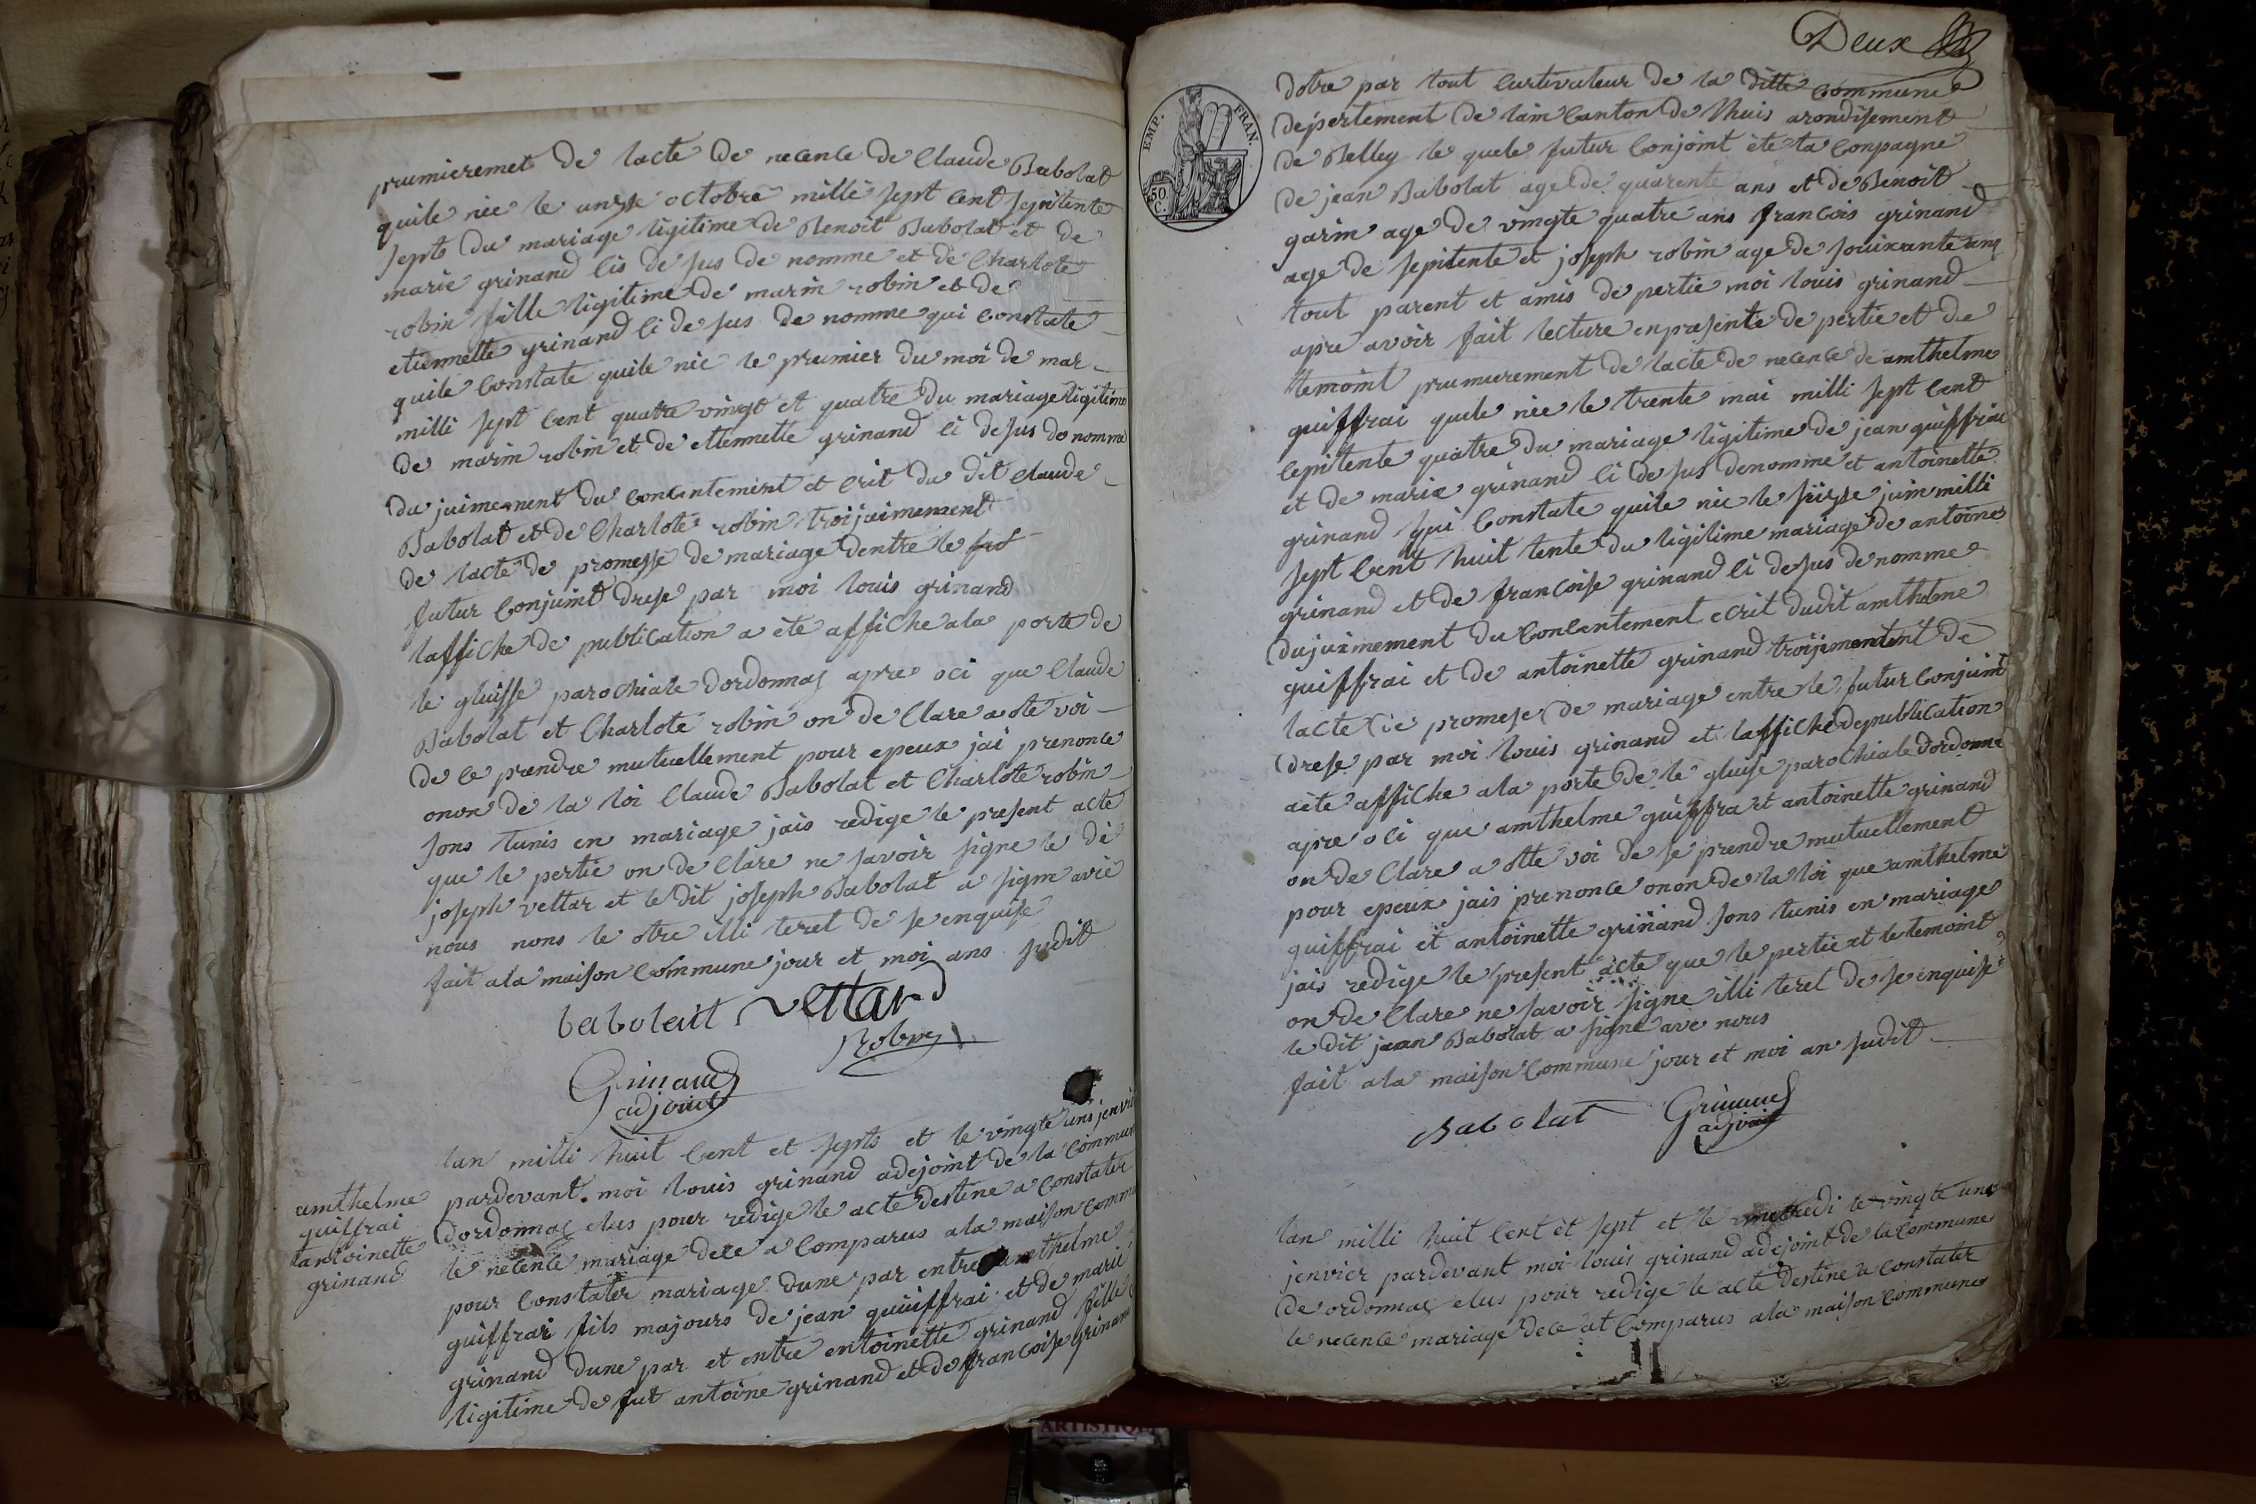 prumieremet de lacte de necence de Claude Babolat
quile nee le unze octobre milli sept cent sepitente
sept du mariage ligitime de Benoit Babolat et de
marie grinand cis de sus de nomme et de Charlote
robin fille ligitime de marin robin et de
etiennette grinand ci de sus de nomme qui constate
quile constate quile nee le prumier du moi de mar
milli sept cent quatre vingt et quatre du mariage ligitime
de marin robin et de ettennette grinand ci de sus de nomme
du juimement du concentemint et crit du dit Claude
Babolat et de Charlote robin troijuimement
de lacte de promesse de mariage dentre le
futur Conjuint drese par moi louis grinand
laffiche de publication a ete affiche ala porte de
le gluisse parochiale dordonnaz apre oci que Claude
Babolat et Charlote robin on de Clare a ote voi
de ce prendre mutuellement pour epeux jai prenonce
onon de la loi Claude Babolat et Charlote robin
sons tunis en mariage jais redige le present acte
que le pertie on de Clare ne savoir signe le di
joseph vettar et le dit joseph Babolat a signe avie
nous nons le otre illi teret de se enquise
fait ala maison Commune jour et moi ans sudit
babolait vettard
Robin
Grinand
adjoint
lan milli huit cent et septs et le vingte uns jenvi
pardevant moi louis grinand adejoint de la commun
amthelme
quiffrai
antoinette
grinand
dordonnaz elus pour redige le acte destine a constater
le necence mariage dece a comparus ala maison comm
pour constater mariage dune par entre amthelme
quiffrai fils majours de jean quiuffrai et de marie
grinand dune par et entre entoinette grinand fille
ligitime de fut antoine grinand et de francoise grinand
Deux
dotre par tout curtivateur de la ditte commune
depertement de lain Canton de lhuis arondisement
de Belley le quele futur Conjoint ete ta conpagne
de jean Babolat age de quarente ans et de Benoit
garin age de vingte quatre ans francois grinand
age de sepitente et joseph robin age de souixante cinq
tout parent et amis de pertie moi louis grinand
apre avoir fait lecture en presente de pertie et de
temoint prumierement de lacte de necence de amthelme
quiffrai quile nee le trente mai milli sept cent
cepitente quatre du mariage ligitime de jean quiffrai
et de marie grinand ci de sus denomme et antoinette
grinand qui Constate quile nee le siizse juin milli
sept cent huit tente du ligitime mariage de antoine
grinand et de francoise grinand ci de sus de nomme
dujuimement du concentement ecrit dudit amthelme
quiffrai et de antoinette grinand troijemontent de
lacte de promese de mariage entre le futur Conjuint
drese par moi louis grinand et laffiche depublication
aete affiche ala porte de le gluise parochiale dordonna
apre oci que amthelme quiffra et antoinette grinand
on de Clare a otte voi de se prendre mutuellement
pour epeux jais prenonce onon de la loi que amthelme
quiffrai et antoinette grinand sons tunis en mariage
jais redige le present acte que le pertie et le temoint
on de Clare ne savoir signe illi teret de se enquise
le dit jean Babolat a signe ave nous
fait ala maison Commune jour et moi an sudit
Babolat Grinand
adjoint
lan milli huit cent et sept et le mecredi le vingte uns
jenvier pardevant moi louis grinand adejoint de la commune
de ordonnaz elus pour redige le acte destine a constater
le necence mariage dece et Comparus ala maison commune
EMP. FRAN.
50 C.
ARTISTIQU